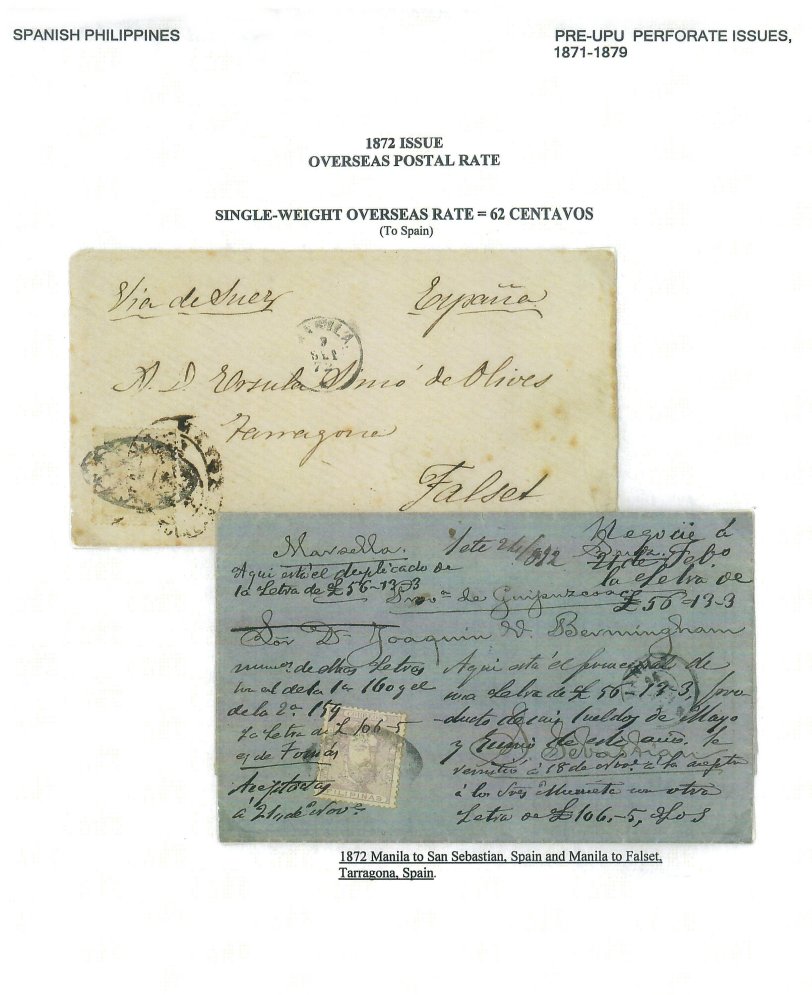 SPANISH PHILIPPINES
PRE-UPU PERFORATE ISSUES,
1871-1879
1872 ISSUE
OVERSEAS POSTAL RATE
SINGLE-WEIGHT OVERSEAS RATE = 62 CENTAVOS
(To Spain)
Via de Suez
España
MANILA
9
SEP
72
A. D. Ursula Simó de Olives
Tarragona
Falset
Marsella.
Aqui está el duplicado de
la Letra de £ 56-13-3
Negocié á
la Letra de
£ 56-13-3
de Guipuzcoa
Sor Dn Joaquin V. Bermingham
de la 2ª 159
La Letra de £ 106-5
es de Fomas
Aceptadas
á 21 de Novº
Aqui está el principal de
una Letra de £ 56-13-3, pro
ducto de mis sueldos de Mayo
y Junio de este año. Se
S. Sebastian
remitió á 18 de Novº á la acepta
á los Sres Murrieta con otra
Letra de £ 106-5, 
FILIPINAS
1872 Manila to San Sebastian, Spain and Manila to Falset,
Tarragona, Spain.